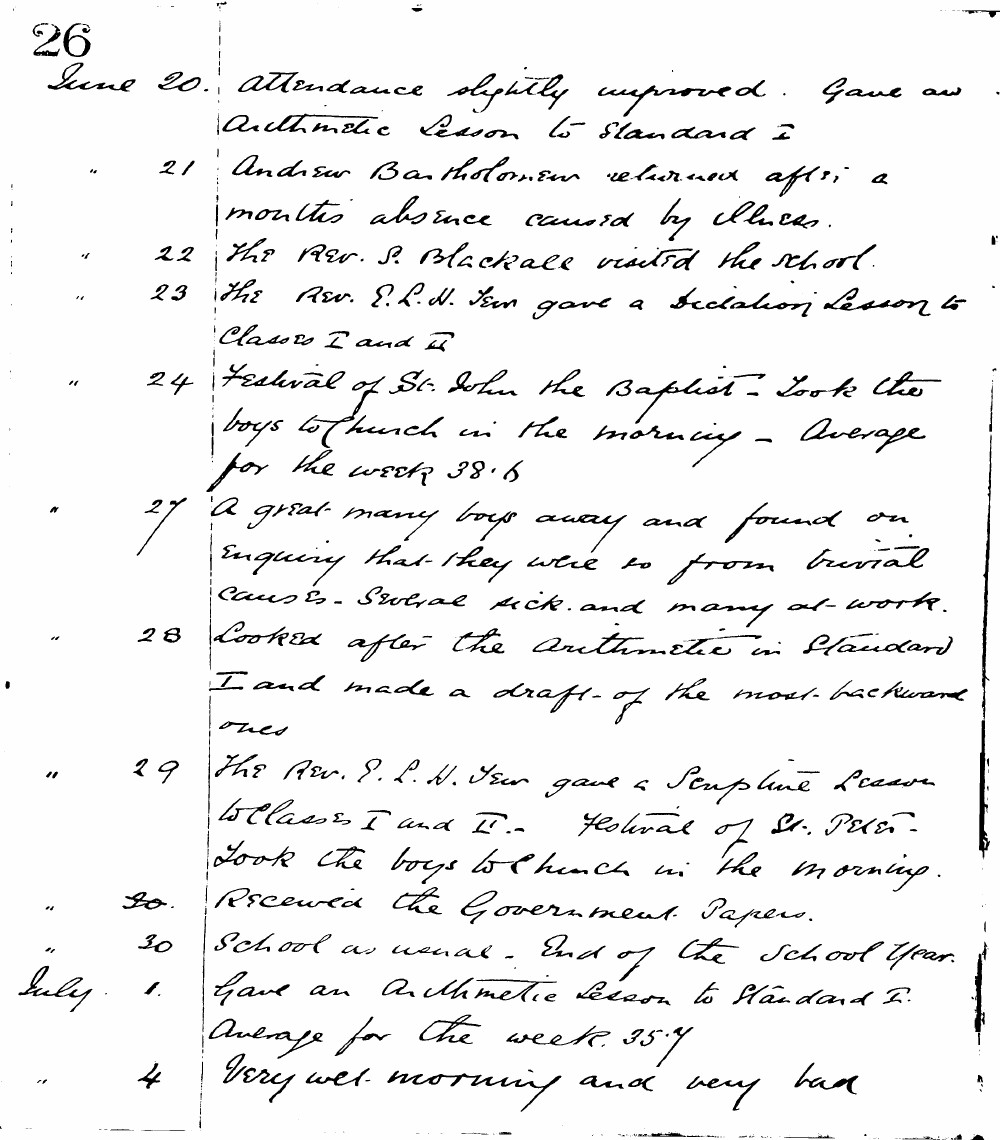 26
June 20. Attendance slightly improved. Gave an
Arithmetic Lesson to Standard I
" 21 Andrew Bartholomew returned after a
months absence caused by illness.
" 22 The Rev. S. Blackall visited the school.
" 23 The Rev. E. L. H. Tew gave a Dictation Lesson to
Classes I and II
" 24 Festival of St. John the Baptist - Took the
boys to Church in the morning - Average
for the week 38.6
" 27 A great many boys away and found on
enquiry that they were so from trivial
causes - Several sick and many at work.
" 28 Looked after the Arithmetic in Standard
I and made a draft of the most backward
ones
" 29 The Rev. E. L. H. Tew gave a Scripture Lesson
to Classes I and II. - Festival of St. Peter -
Took the boys to Church in the morning.
" 30. Received the Government Papers.
" 30 School as usual - End of the School Year.
July 1. Gave an Arithmetic Lesson to Standard I.
Average for the week. 35.7
" 4 Very wet morning and very bad